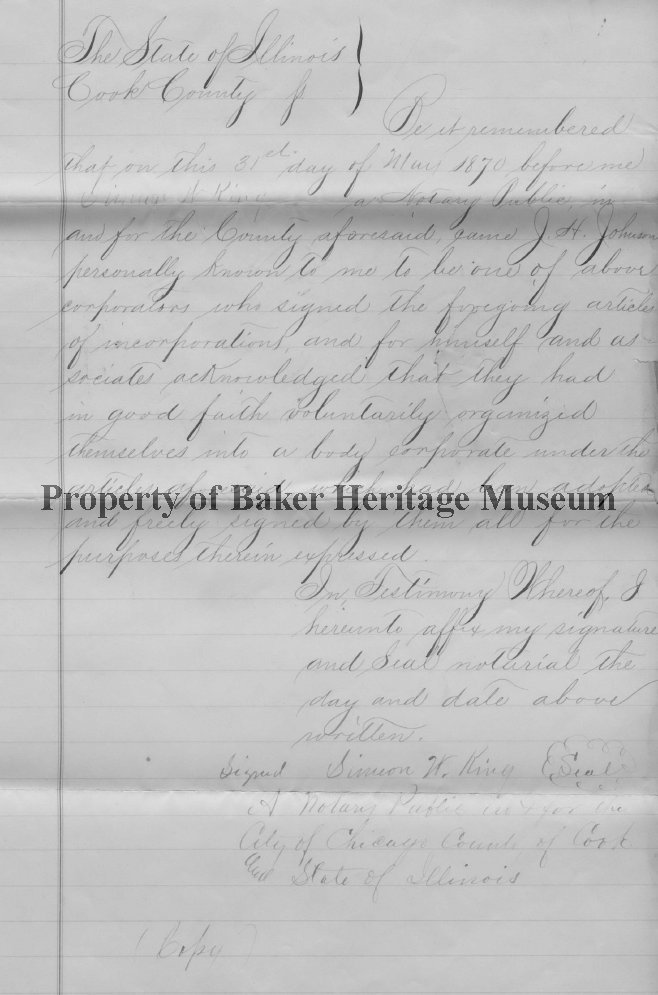 The State of Illinois
Cook County ss
Be it remembered
that on this 31st day of May 1870 before me
Simeon W. King a Notary Public, in
and for the County aforesaid, came J. H. Johnson
personally known to me to be one of above
corporators who signed the foregoing articles
of incorporations, and for himself and as-
sociates acknowledged that they had
in good faith voluntarily organized
themselves into a body corporate under the
articles aforesaid which had been adopted
Property of Baker Heritage Museum
and freely signed by them all for the
purposes therein expressed.
In Testimony Whereof, I
hereunto affix my signature
and Seal notarial the
day and date above
written.
Signed Simeon W. King (Seal)
A Notary Public in & for the
City of Chicago County of Cook
and State of Illinois
(Copy)